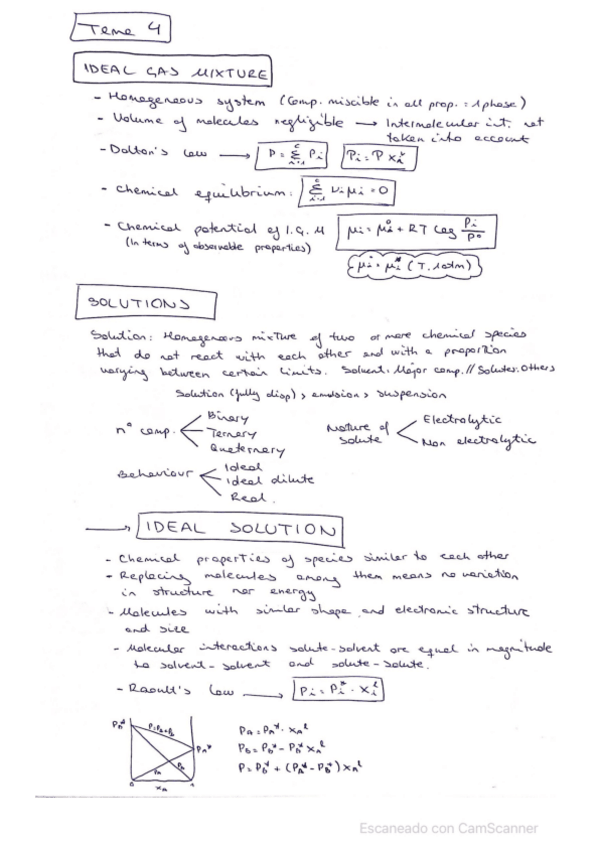 Tema 4
IDEAL GAS MIXTURE
- Homogeneous system (Comp. miscible in all prop. : 1phase)
- Volume of molecules negligible → Intermolecular int. not
taken into account
- Dalton's law → P = Σ Pi Pi = P xi^v
- Chemical equilibrium: Σ νi μi = 0
- Chemical potential of I.G.M μi = μi° + RT log Pi/P°
(In terms of observable properties)
μi° = μi* (T, 1atm)
SOLUTIONS
Solution: Homogeneous mixture of two or more chemical species
that do not react with each other and with a proportion
varying between certain limits. Solvent: Major comp. // Solutes: Others
Solution (fully disp) > emulsion > suspension
nº comp.
Binary
Ternary
Quaternary
Nature of
solute
Electrolytic
Non electrolytic
Behaviour
Ideal
Ideal dilute
Real.
→ IDEAL SOLUTION
- Chemical properties of species similar to each other
- Replacing molecules among them means no variation
in structure nor energy
- Molecules with similar shape and electronic structure
and size
- Molecular interactions solute-solvent are equal in magnitude
to solvent-solvent and solute-solute.
- Raoult's law → Pi = Pi* · xi^l
PB*
P=PA+PB
PA*
PA
PB
0
xA
1
PA = PA* · xA^l
PB = PB* - PB* xA^l
P = PB* + (PA* - PB*) xA^l
Escaneado con CamScanner